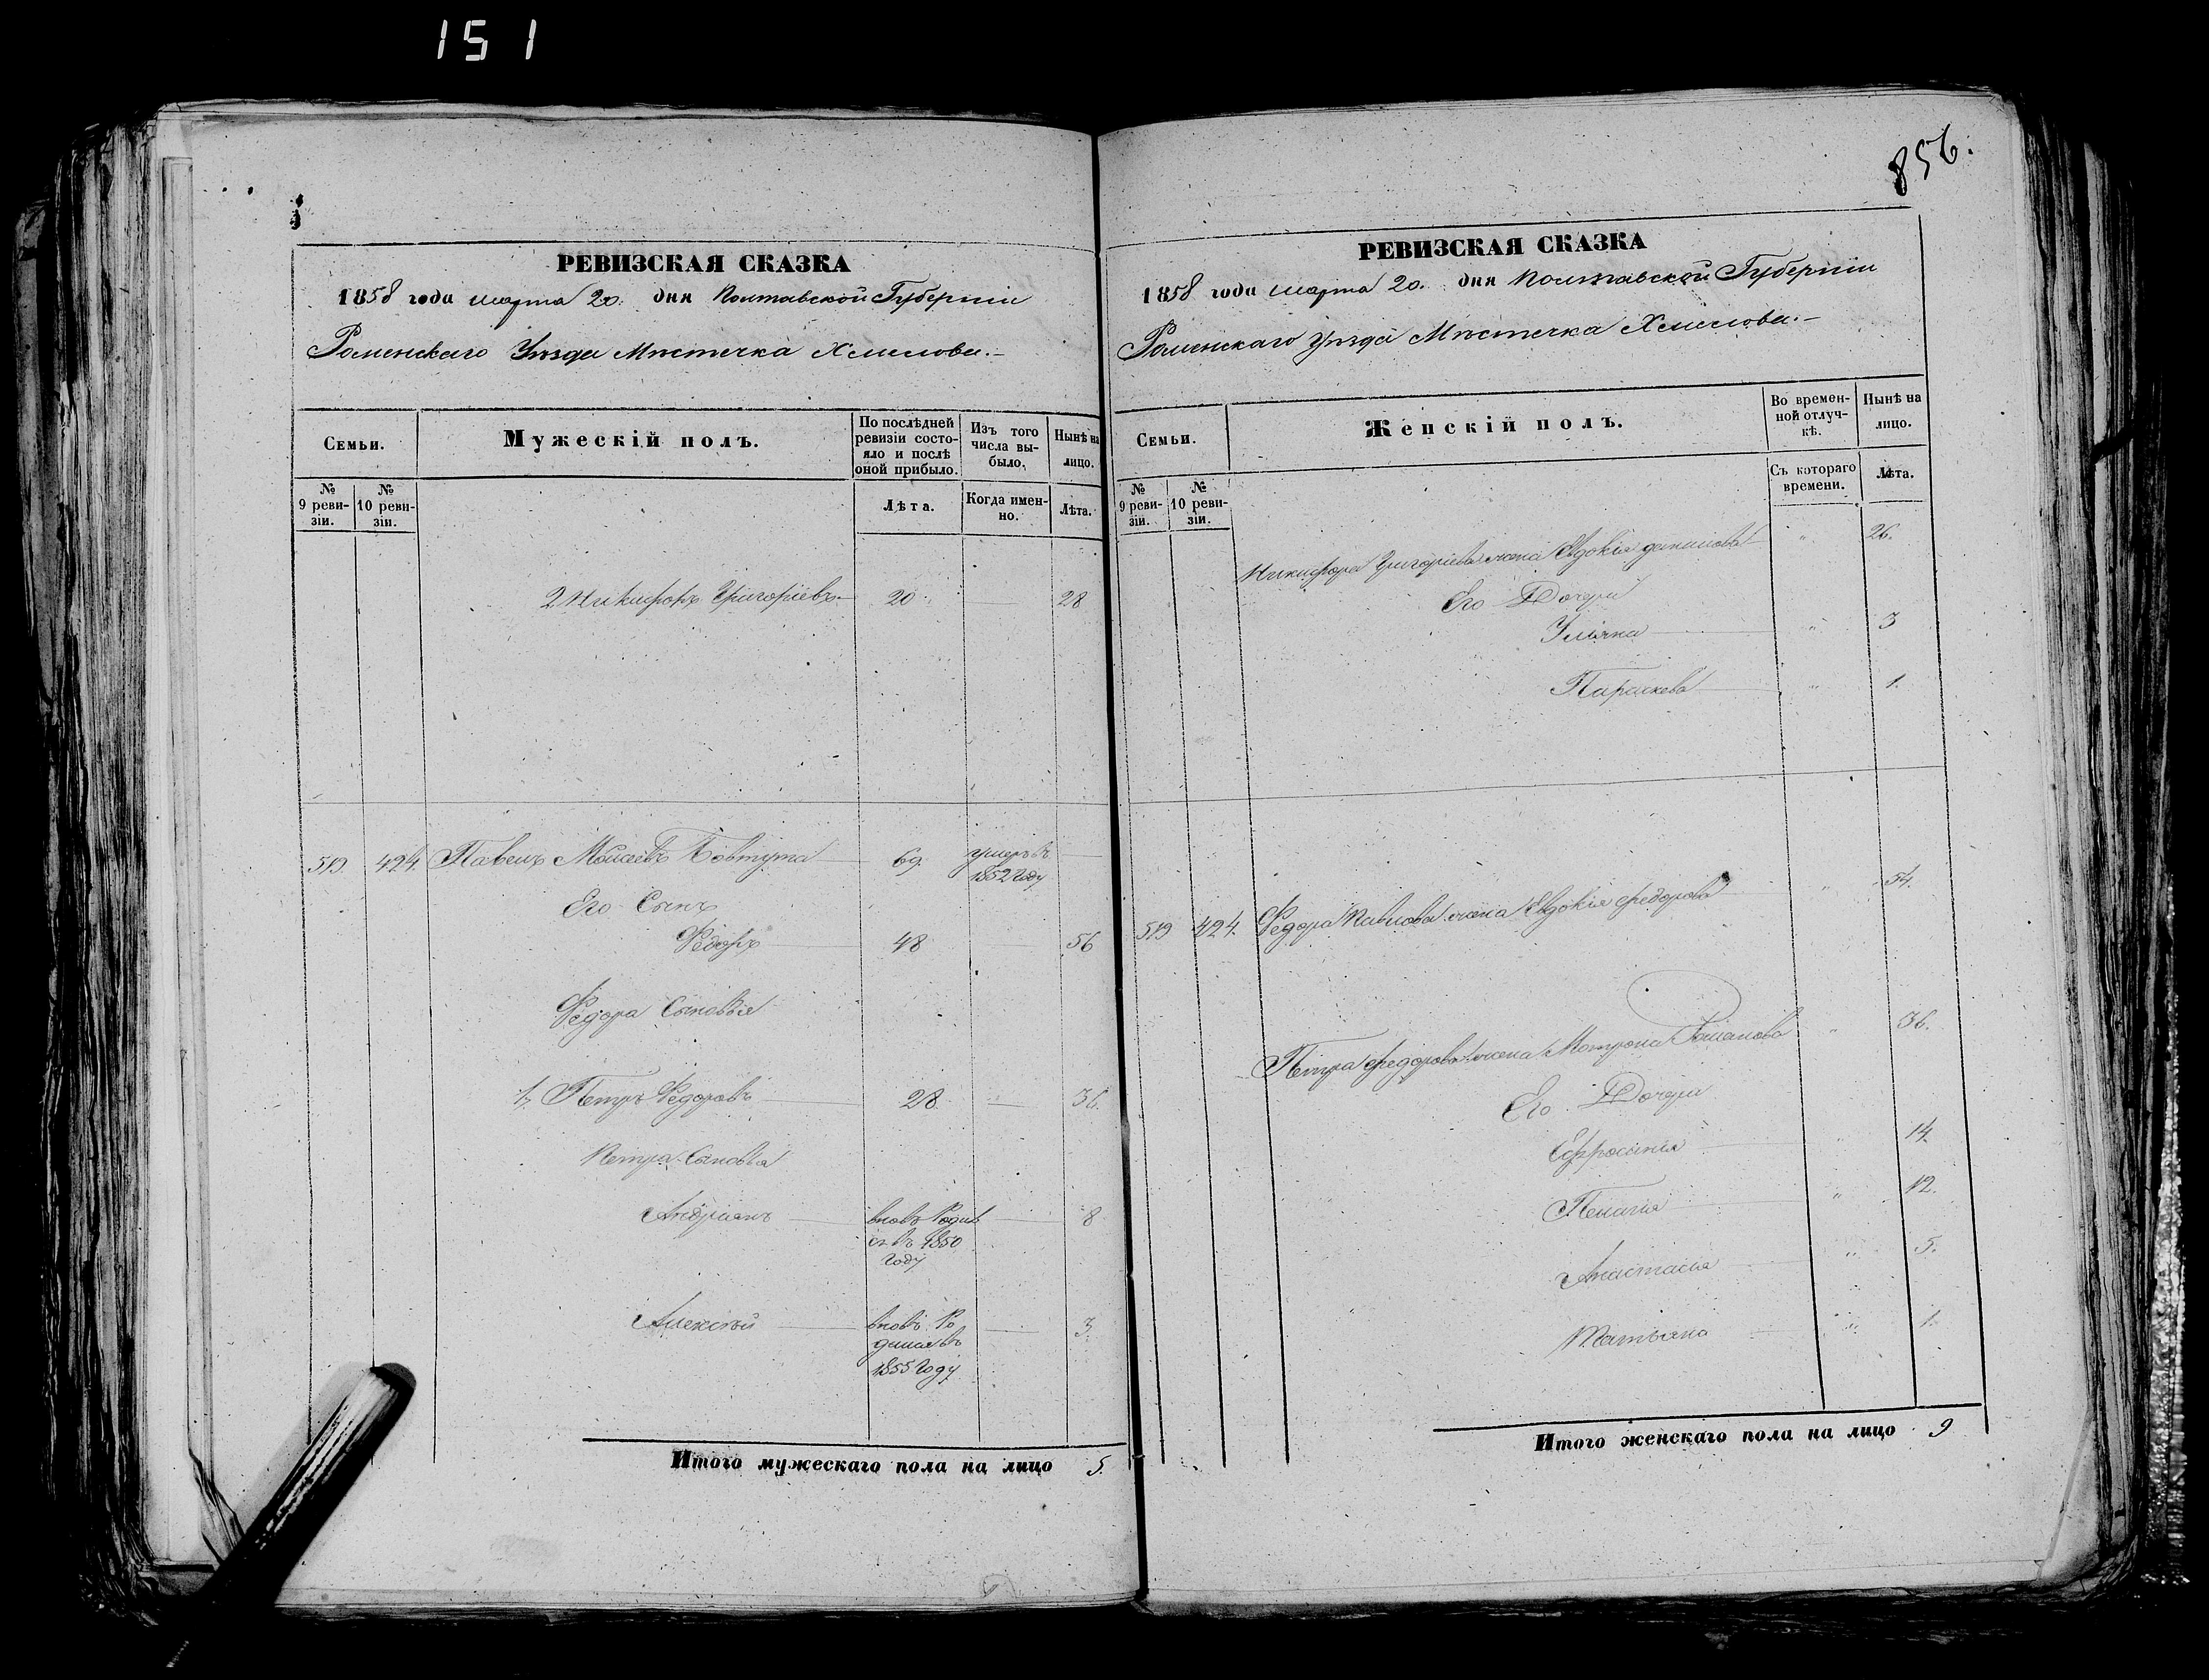 151
856.
РЕВИЗСКАЯ СКАЗКА
1858 года марта 20. дня Полтавской Губерніи
Роменскаго Уѣзда Мѣстечка Хмелова.–
Семьи.
Мужескій полъ.
По послѣдней ревизіи состояло и послѣ оной прибыло.
Изъ того числа выбыло.
Нынѣ на лицо.
№ 9 ревизіи.
№ 10 ревизіи.
Лѣта.
Когда именно.
Лѣта.
2 Никифоръ Григоріевъ 20 28
519 424 Павелъ Моисеевъ Товтута 69 умеръ въ 1852 году
Его Сынъ
Федоръ 48 56
Федора Сыновья
1, Петръ Федоровъ 28 36.
Петра Сыновья
Андріянъ вновь Родился въ 1850 году 8
Алексѣй вновь Родился въ 1855 году 3.
Итого мужескаго пола на лицо 5.
РЕВИЗСКАЯ СКАЗКА
1858 года марта 20. дня Полтавской Губерніи
Роменскаго Уѣзда Мѣстечка Хмелова.–
Семьи.
Женскій полъ.
Во временной отлучкѣ.
Нынѣ на лицо.
№ 9 ревизіи.
№ 10 ревизіи.
Съ котораго времени.
Лѣта.
Никифора Григоріева жена Евдокія Данилова " 26.
Его Дочери
Уліяна " 3
Параскева " 1.
519 424. Федора Павлова жена Евдокія Федорова " 54.
Петра Федорова жена Мотрона Романова " 36.
Его Дочери
Ефросинія " 14.
Пелагія " 12.
Анастасія " 5.
Татіяна " 1.
Итого женскаго пола на лицо 9